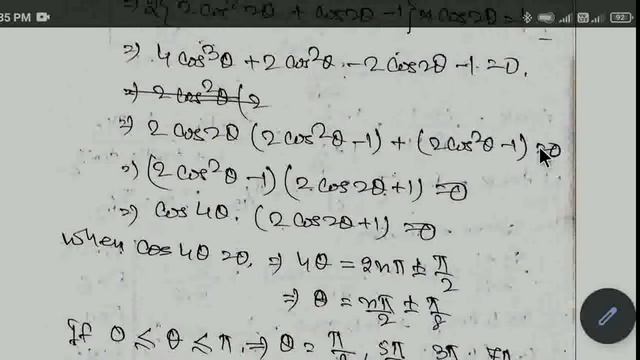 35 PM
⇒ 2{2cos²2θ + cos2θ - 1} × cos2θ =
⇒ 4cos³θ + 2cos²θ - 2cos2θ - 1 = 0.
⇒ 2cos²θ(2
⇒ 2cos2θ (2cos²θ - 1) + (2cos²θ - 1) = 0
⇒ (2cos²θ - 1) (2cos2θ + 1) = 0
⇒ cos4θ. (2cos2θ + 1) = 0.
When cos4θ = 0, ⇒ 4θ = 2nπ ± π/2
⇒ θ = nπ/2 ± π/8
If 0 ≤ θ ≤ π, ⇒ θ = π/8, 5π 3π 7π